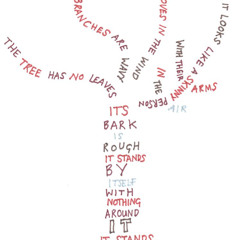 THE TREE HAS NO LEAVES
BRANCHES ARE WAVY
OVES IN THE WIND
IT LOOKS LIKE A
PERSON IN THE
AIR
WITH THEIR
SKINNY ARMS
ITS
BARK
IS
ROUGH
IT STANDS
BY
ITSELF
WITH
NOTHING
AROUND
IT
IT STANDS